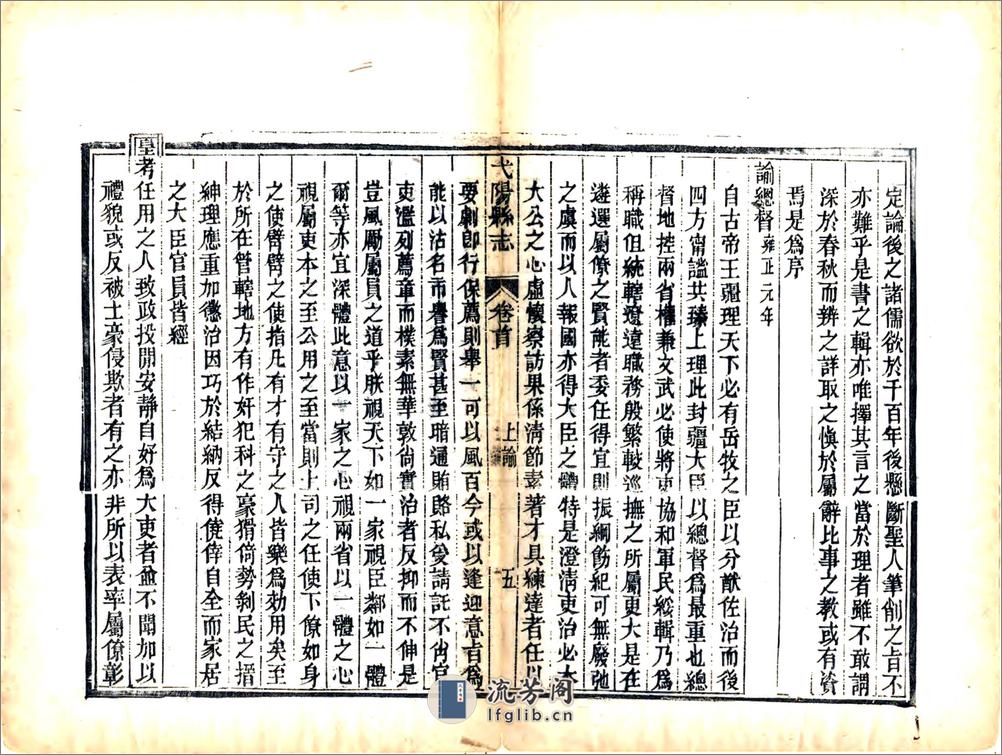 定論後之諸儒欲於千百年後懸斷聖人筆削之旨不
亦難乎是書之輯亦唯擇其言之當於理者雖不敢謂
深於春秋而辨之詳取之慎於屬辭比事之教或有資
焉是為序
諭總督雍正元年
自古帝王疆理天下必有岳牧之臣以分猷佐治而後
四方甯謐共臻上理此封疆大臣以總督為最重也總
督地控兩省權兼文武必使將吏協和軍民綏輯乃為
稱職但統轄遼遠職務殷繁較巡撫之所屬更大是在
遴選屬僚之賢能者委任得宜則振綱飭紀可無廢弛
之虞而以人報國亦得大臣之體特是澄清吏治必本
大公之心虛懷察訪果係清節素著才具練達者任以
弋陽縣志
卷首
上諭
五
要劇即行保薦則舉一可以風百今或以逢迎意旨為
能以沽名市譽為賢甚至暗通賄賂私受請託不肖官
吏濫列薦章而樸素無華敦尚實治者反抑而不伸是
豈風勵屬員之道乎朕視天下如一家視臣鄰如一體
爾等亦宜深體此意以一家之心視兩省以一體之心
視屬吏本之至公用之至當則上司之任使下僚如身
之使臂臂之使指凡有才有守之人皆樂為効用矣至
於所在管轄地方有作奸犯科之豪猾倚勢剝民之搢
紳理應重加懲治因巧於結納反得僥倖自全而家居
之大臣官員皆經
皇考任用之人致政投閒安靜自好為大吏者並不聞加以
禮貌或反被土豪侵欺者有之亦非所以表率屬僚彰
流芳閣
lfglib.cn